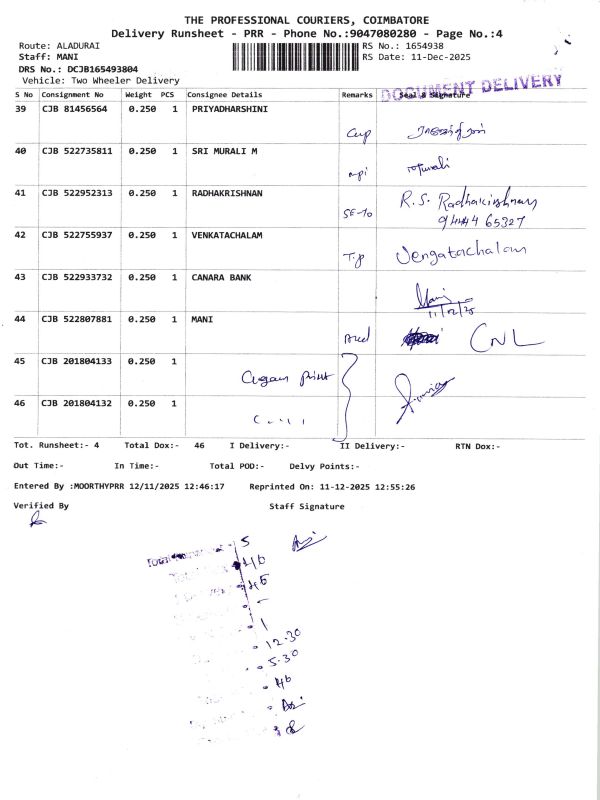 THE PROFESSIONAL COURIERS, COIMBATORE
Delivery Runsheet - PRR - Phone No.:9047080280 - Page No.:4
Route: ALADURAI
RS No.: 1654938
Staff: MANI
RS Date: 11-Dec-2025
DRS No.: DCJB165493804
Vehicle: Two Wheeler Delivery
DOCUMENT DELIVERY
S No Consignment No Weight PCS Consignee Details Remarks Seal & Signature
39 CJB 81456564 0.250 1 PRIYADHARSHINI
40 CJB 522735811 0.250 1 SRI MURALI M
41 CJB 522952313 0.250 1 RADHAKRISHNAN
R.S. Radhakirshnan
94444 65327
42 CJB 522755937 0.250 1 VENKATACHALAM
T.P Vengatachalam
43 CJB 522933732 0.250 1 CANARA BANK
11/12/25
44 CJB 522807881 0.250 1 MANI
CNL
45 CJB 201804133 0.250 1
46 CJB 201804132 0.250 1
Tot. Runsheet:- 4 Total Dox:- 46 I Delivery:- II Delivery:- RTN Dox:-
Out Time:- In Time:- Total POD:- Delvy Points:-
Entered By :MOORTHYPRR 12/11/2025 12:46:17 Reprinted On: 11-12-2025 12:55:26
Verified By Staff Signature
5
46
45
-
1
12.30
5.30
46